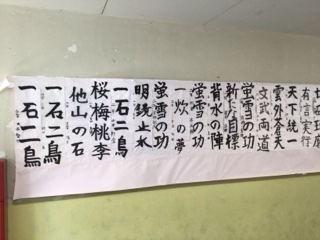 有言実行
天下統一
雲外蒼天
文武両道
蛍雪の功
新たな目標
背水の陣
蛍雪の功
一炊の夢
蛍雪の功
明鏡止水
一石二鳥
桜梅桃李
他山の石
一石二鳥
一石二鳥